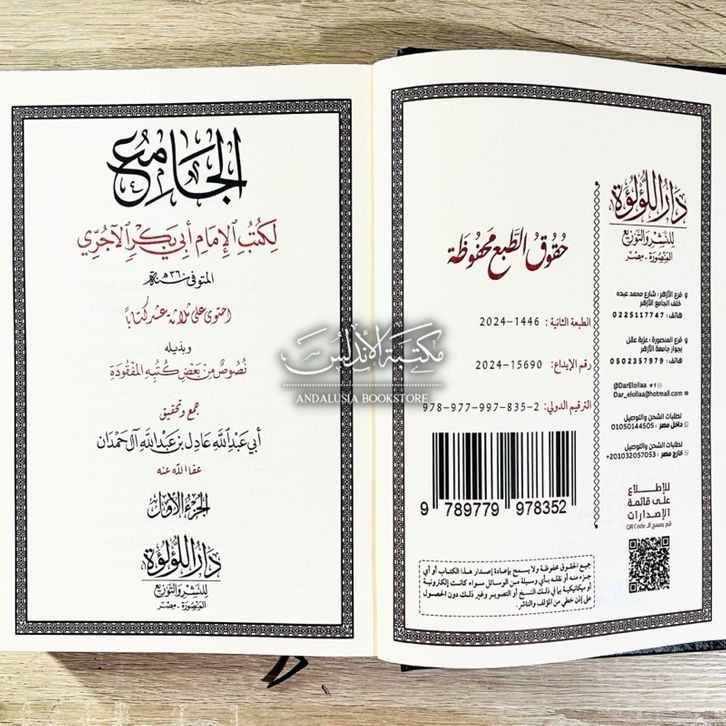 الجامع
لكتب الإمام أبي بكر الآجري
المتوفى سنة ٣٦٠هـ
احتوى على ثلاثة عشر كتابا
وبذيله
نصوص من بعض كتبه المفقودة
جمع وتحقيق
أبي عبد الله عادل بن عبد الله آل حمدان
عفا الله عنه
الجزء الأول
دار اللؤلؤة
للنشر والتوزيع
المنصورة - مصر
مكتبة الأندلس
ANDALUSIA BOOKSTORE
دار اللؤلؤة
للنشر والتوزيع
المنصورة - مصر
حقوق الطبع محفوظة
الطبعة الثانية: 1446-2024
رقم الإيداع: 15690-2024
الترقيم الدولي: 2-835-997-977-978
9 789779 978352
فرع الأزهر: شارع محمد عبده
خلف الجامع الأزهر
هاتف: 0225117747
فرع المنصورة: عزبة عقل
بجوار جامعة الأزهر
هاتف: 0502357979
@DarElollaa
Dar_elollaa@hotmail.com
لطلبات الشحن والتوصيل
داخل مصر: 01050144505
لطلبات الشحن والتوصيل
خارج مصر: 201032057053+
للاطلاع
على قائمة
الإصدارات
قم بمسح الـ QR Code
جميع الحقوق محفوظة ولا يسمح بإعادة إصدار هذا الكتاب أو أي
جزء منه أو نقله بأي وسيلة من الوسائل سواء كانت إلكترونية
أو ميكانيكية بما في ذلك النسخ أو التصوير وغير ذلك دون الحصول
على إذن خطي من المؤلف والناشر.